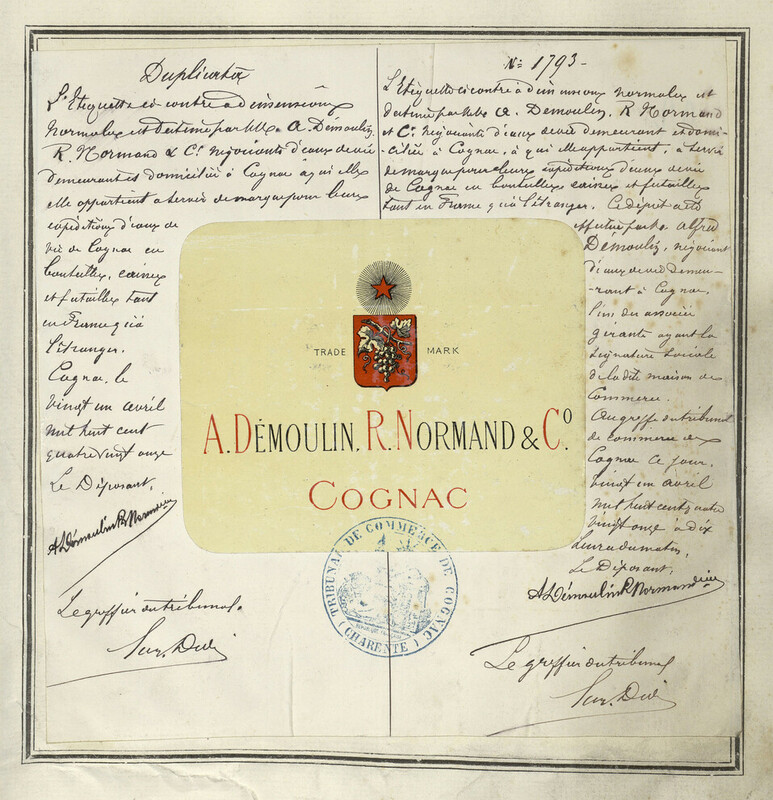 Duplicata
L'Etiquette ci-contre a dimensions
Normales et destiné par MM. A. Démoulin,
R. Normand & Cie négociants d'eaux de vie
demeurant et domiciliés à Cognac à qui elle
elle appartient a servir de marque pour leurs
expéditions d'eaux de
vie de Cognac en
bouteilles, caisses
et futailles tant
en France qu'à
l'étranger.
Cognac, le
vingt un avril
mil huit cent
quatre vingt onze
Le Déposant,
A Démoulin R Normand
Le greffier du tribunal.
No 1793-
L'Etiquette ci contre a dimensions normales et
destiné par MM. A. Démoulin, R. Normand
et Cie négociants d'eaux de vie demeurant et domi-
-ciliés à Cognac, à qui elle appartient, a servir
de marque pour leurs expéditions d'eaux de vie
de Cognac en bouteilles caisses et futailles
tant en France qu'à l'étranger. Ce dépôt a été
effectué par M. Alfred
Démoulin, négociant
d'eaux de vie demeu-
-rant à Cognac,
l'un des associés
gérants ayant la
signature sociale
de la dite maison de
Commerce.
Au greffe du tribunal
de commerce de
Cognac ce jour,
vingt un avril
mil huit cent quatre
vingt onze à dix
heures du matin,
Le Déposant,
A Démoulin R Normand
Le greffier du tribunal
TRADE MARK
A. DÉMOULIN, R. NORMAND & Co.
COGNAC
TRIBUNAL DE COMMERCE DE COGNAC
(CHARENTE)